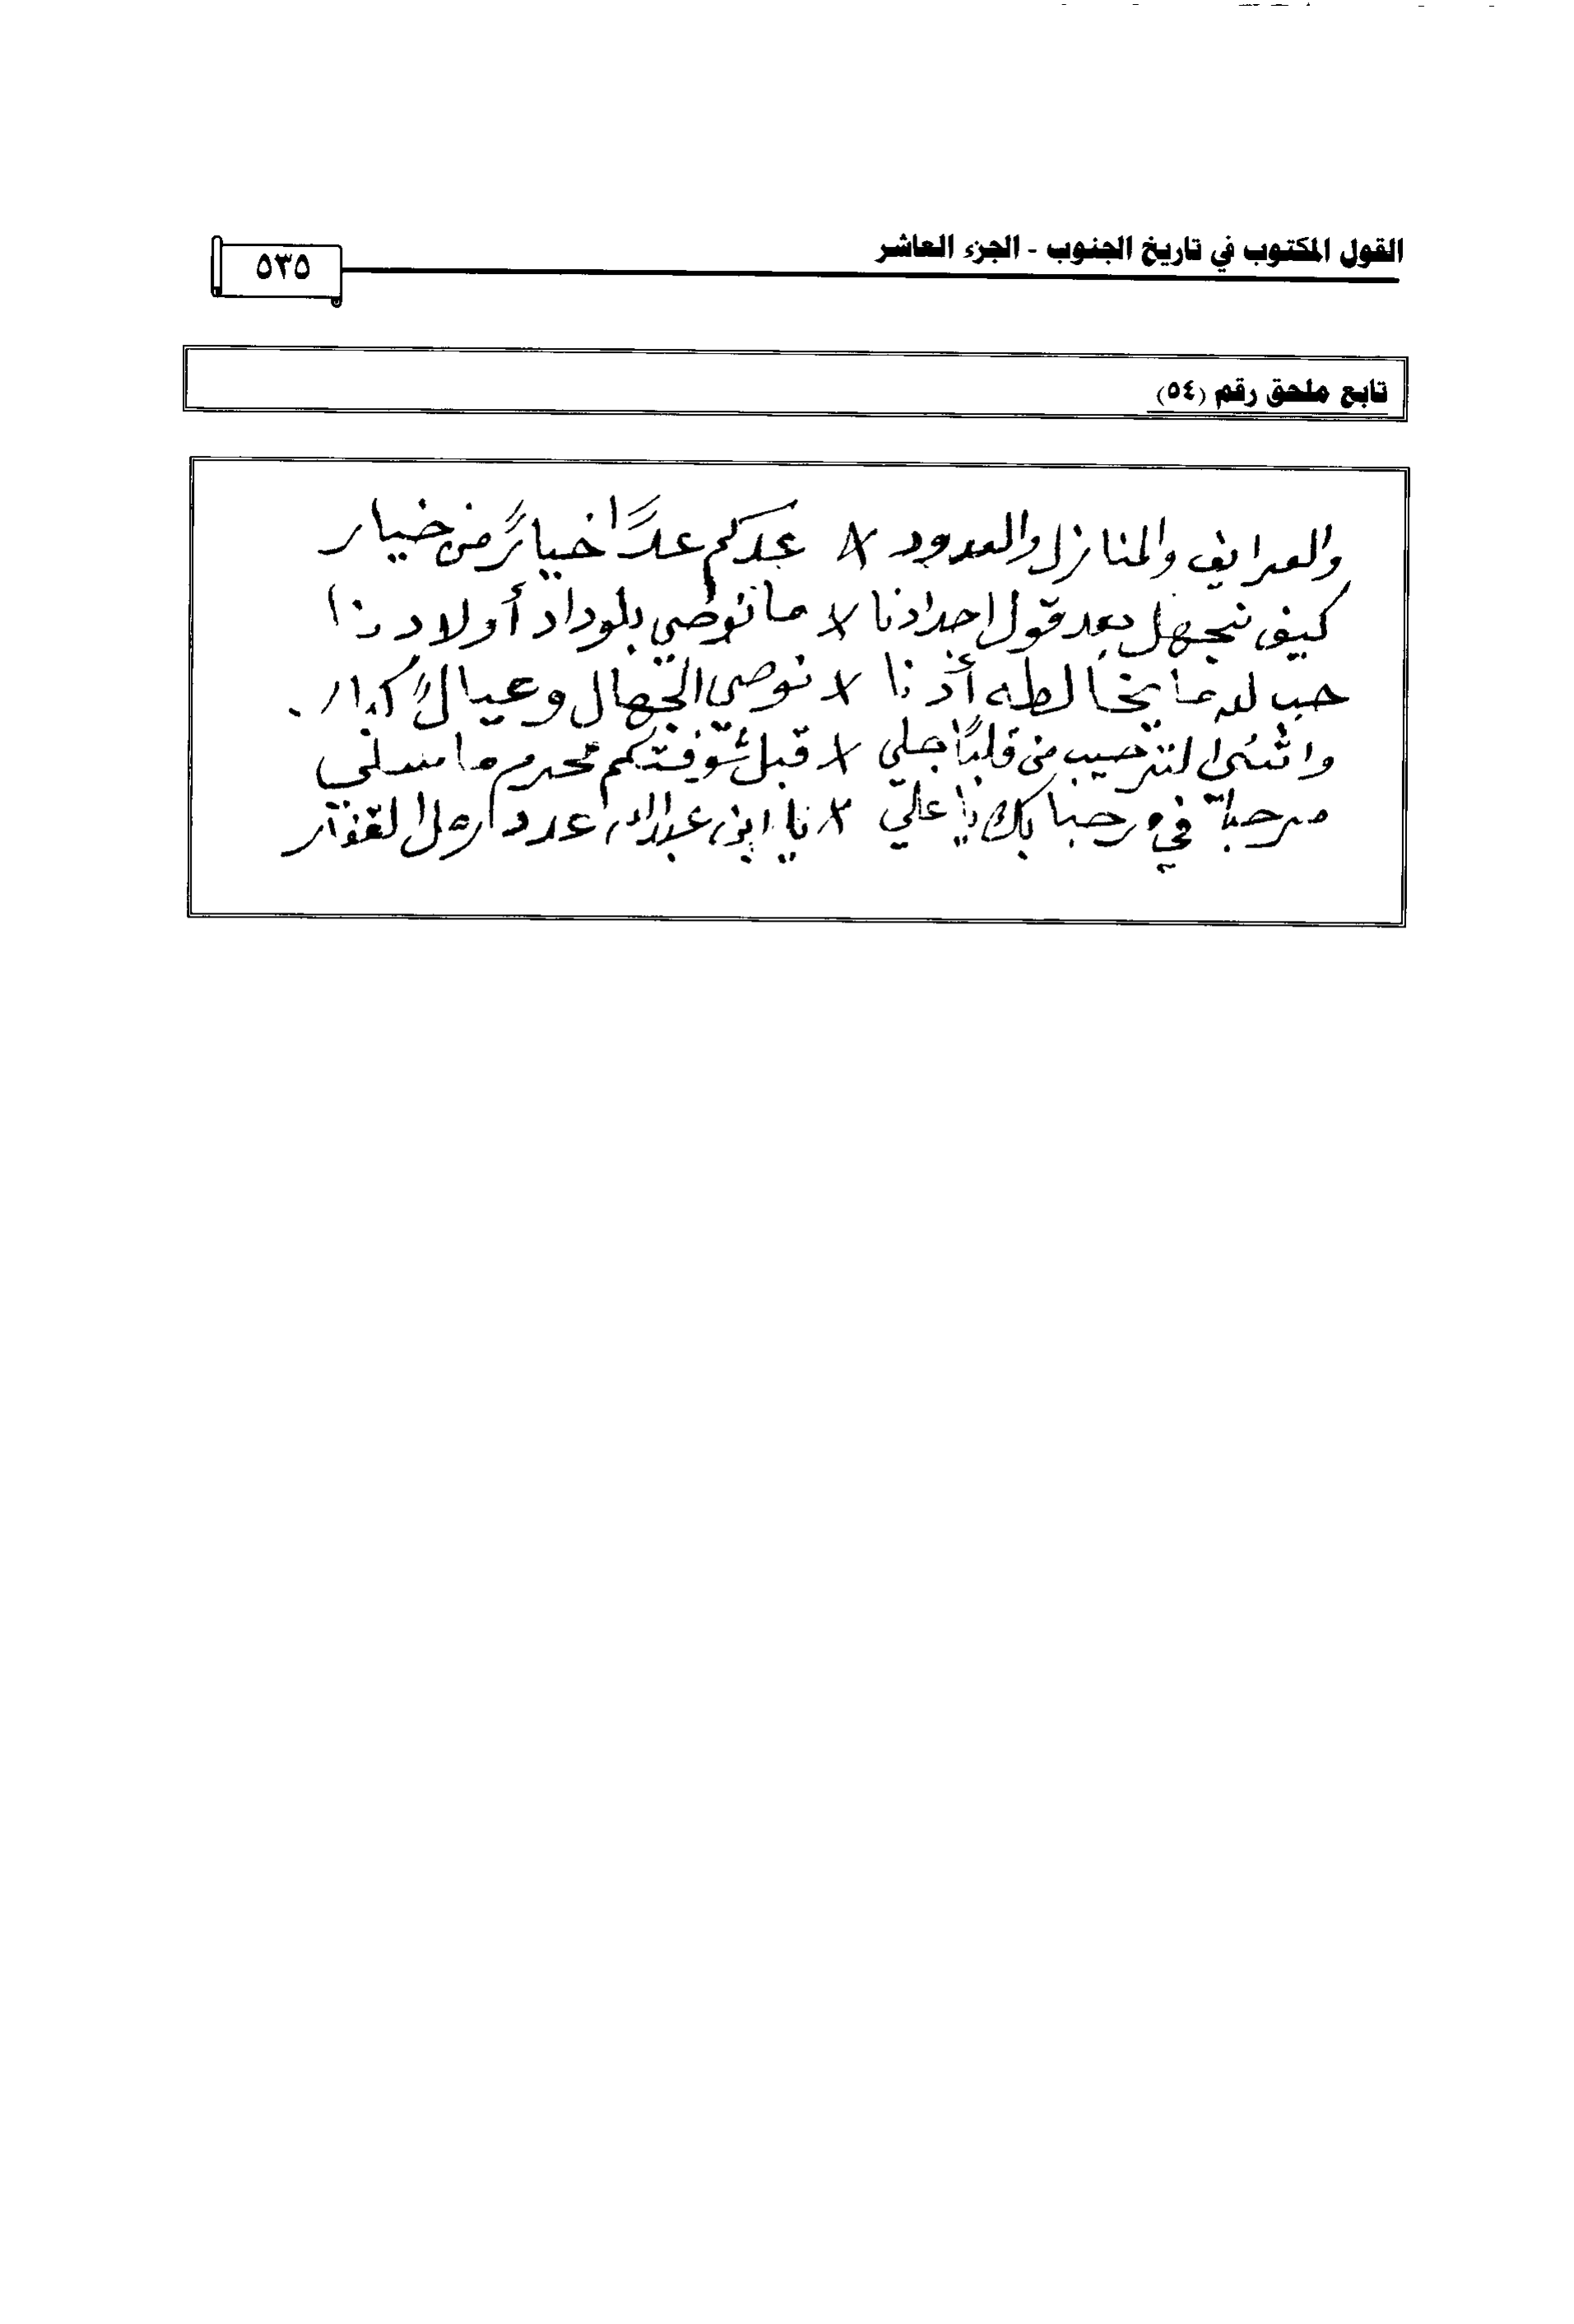 القول المكتوب في تاريخ الجنوب - الجزء العاشر
٥٣٥
تابع ملحق رقم (٥٤)
والعرايف والمنازل والعدود × عدكم عدًا خيارً من خيار
كيف نجهل بعد قول اجدادنا × ما نوصي بلوداد أولادنا
حب لله ما يخالطه أذنا × نوصي الجهال وعيالً كبار.
واثني لترحيب من قلبًا جلي × قبل شوفتكم محرم ما سلي
مرحبا في مرحبا بك يا علي × يا ابن عبدالله عدد رمل القفار